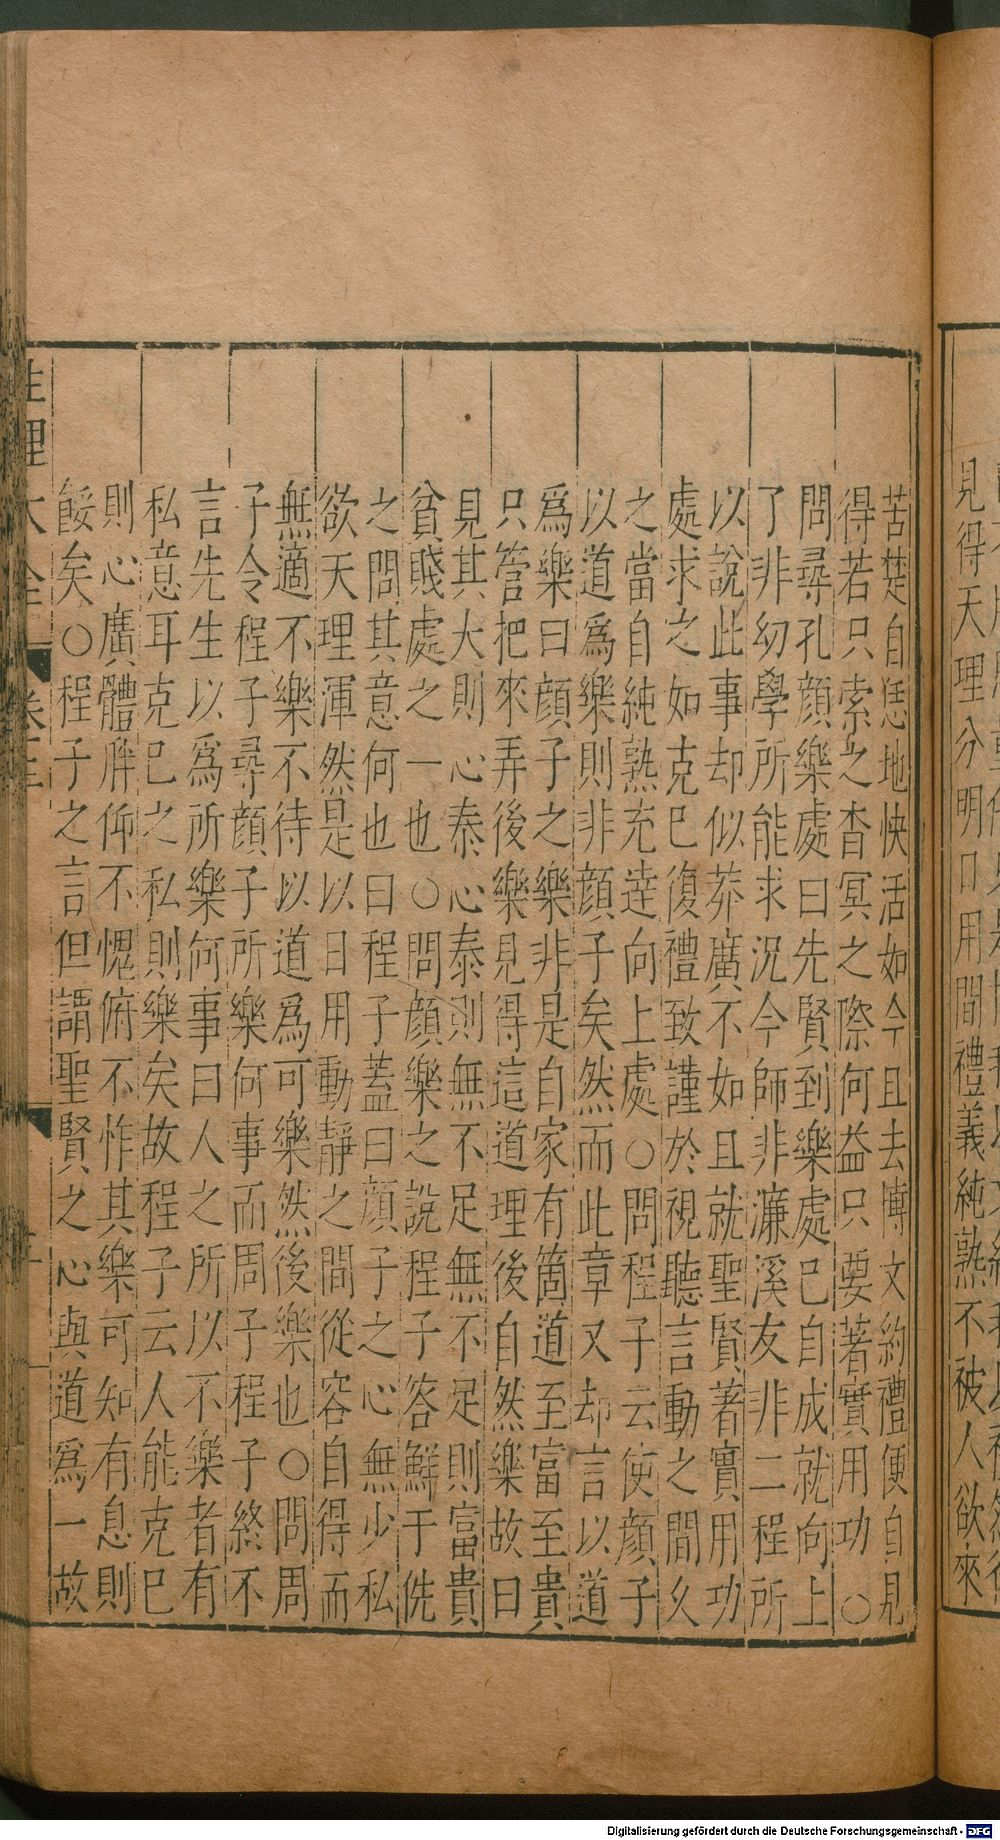 見得天理分明日用間禮義純熟不被人欲來
苦楚自恁地快活如今且去博文約禮便自見
得若只索之杳冥之際何益只要著實用功○
問尋孔顏樂處曰先賢到樂處已自成就向上
了非幼學所能求況今師非濂溪友非二程所
以說此事却似莽廣不如且就聖賢著實用功
處求之如克已復禮致謹於視聽言動之間久
之當自純熟充達向上處○問程子云使顏子
以道爲樂則非顏子矣然而此章又却言以道
爲樂曰顏子之樂非是自家有箇道至富至貴
只管把來弄後樂見得這道理後自然樂故曰
見其大則心泰心泰則無不足無不足則富貴
貧賤處之一也○問顏樂之說程子答鮮于侁
之問其意何也曰程子蓋曰顏子之心無少私
欲天理渾然是以日用動靜之間從容自得而
無適不樂不待以道爲可樂然後樂也○問周
子令程子尋顏子所樂何事而周子程子終不
言先生以爲所樂何事曰人之所以不樂者有
私意耳克已之私則樂矣故程子云人能克已
則心廣體胖仰不愧俯不怍其樂可知有息則
餒矣○程子之言但謂聖賢之心與道爲一故
性理大全
Digitalisierung gefördert durch die Deutsche Forschungsgemeinschaft - DFG